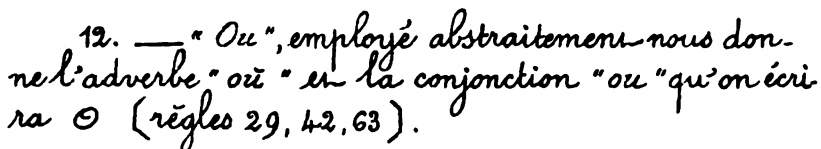 12. — " Ou ", employé abstraitement nous don-
ne l'adverbe " où " et la conjonction " ou " qu'on écri-
ra ⊙ (règles 29, 42, 63).